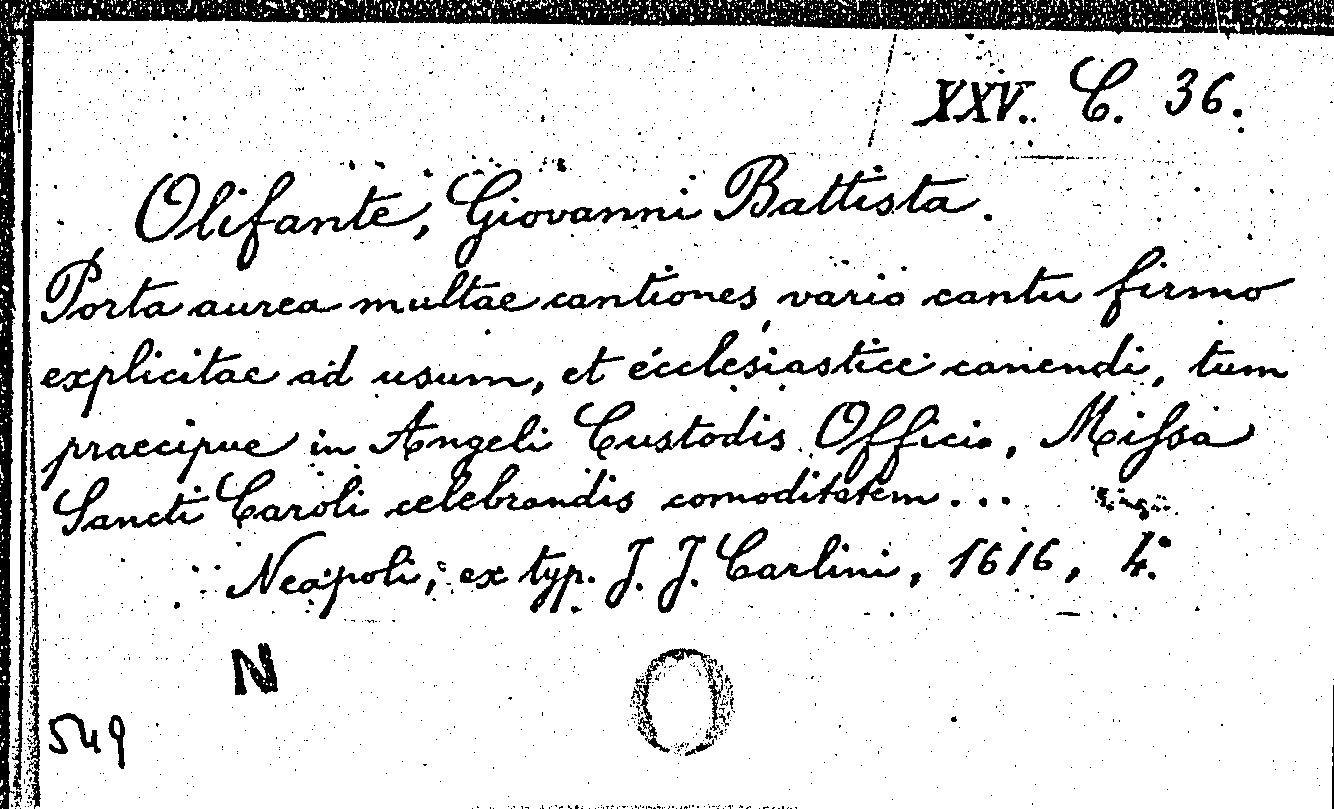 XXV. C. 36.
Olifante, Giovanni Battista.
Porta aurea multae cantiones, vario cantu firmo
explicitae ad usum, et ecclesiastice canendi, tum
praecipue in Angeli Custodis Officio, Missa
Sancti Caroli celebrandis comoditatem...
Neapoli, ex typ. J. J. Carlini, 1616, 4º.
N
549